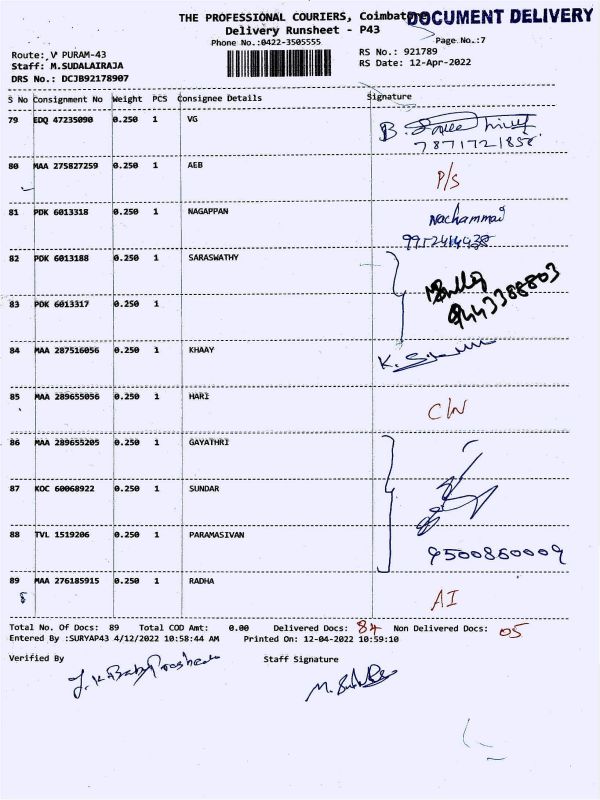 THE PROFESSIONAL COURIERS, Coimbatore
DOCUMENT DELIVERY
Delivery Runsheet - P43
Phone No.:0422-3505555
Page No.:7
Route: V PURAM-43
RS No.: 921789
Staff: M.SUDALAIRAJA
RS Date: 12-Apr-2022
DRS No.: DCJB92178907
S No Consignment No Weight PCS Consignee Details Signature
79 EDQ 47235090 0.250 1 VG
7871721858
80 MAA 275827259 0.250 1 AEB P/S
81 PDK 6013318 0.250 1 NAGAPPAN Nachammai
82 PDK 6013188 0.250 1 SARASWATHY
9443388803
83 PDK 6013317 0.250 1
84 MAA 287516056 0.250 1 KHAAY K.
85 MAA 289655056 0.250 1 HARI C/N
86 MAA 289655205 0.250 1 GAYATHRI
87 KOC 60068922 0.250 1 SUNDAR
88 TVL 1519206 0.250 1 PARAMASIVAN 9500860009
89 MAA 276185915 0.250 1 RADHA AI
8
Total No. Of Docs: 89 Total COD Amt: 0.00 Delivered Docs: 84 Non Delivered Docs: 05
Entered By :SURYAP43 4/12/2022 10:58:44 AM Printed On: 12-04-2022 10:59:10
Verified By Staff Signature